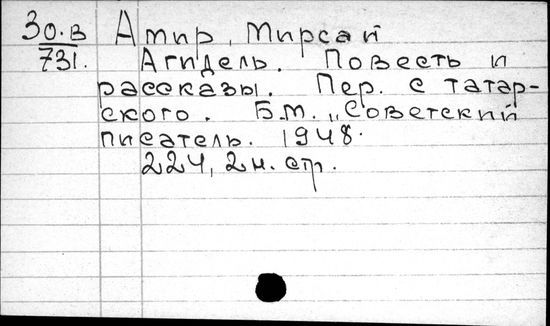 30.В Амир, Мирсай
731. Агидель. Повесть и
рассказы. Пер. с татар-
ского. Б.М. „Советский
писатель. 1948.
224, 2 н. стр.